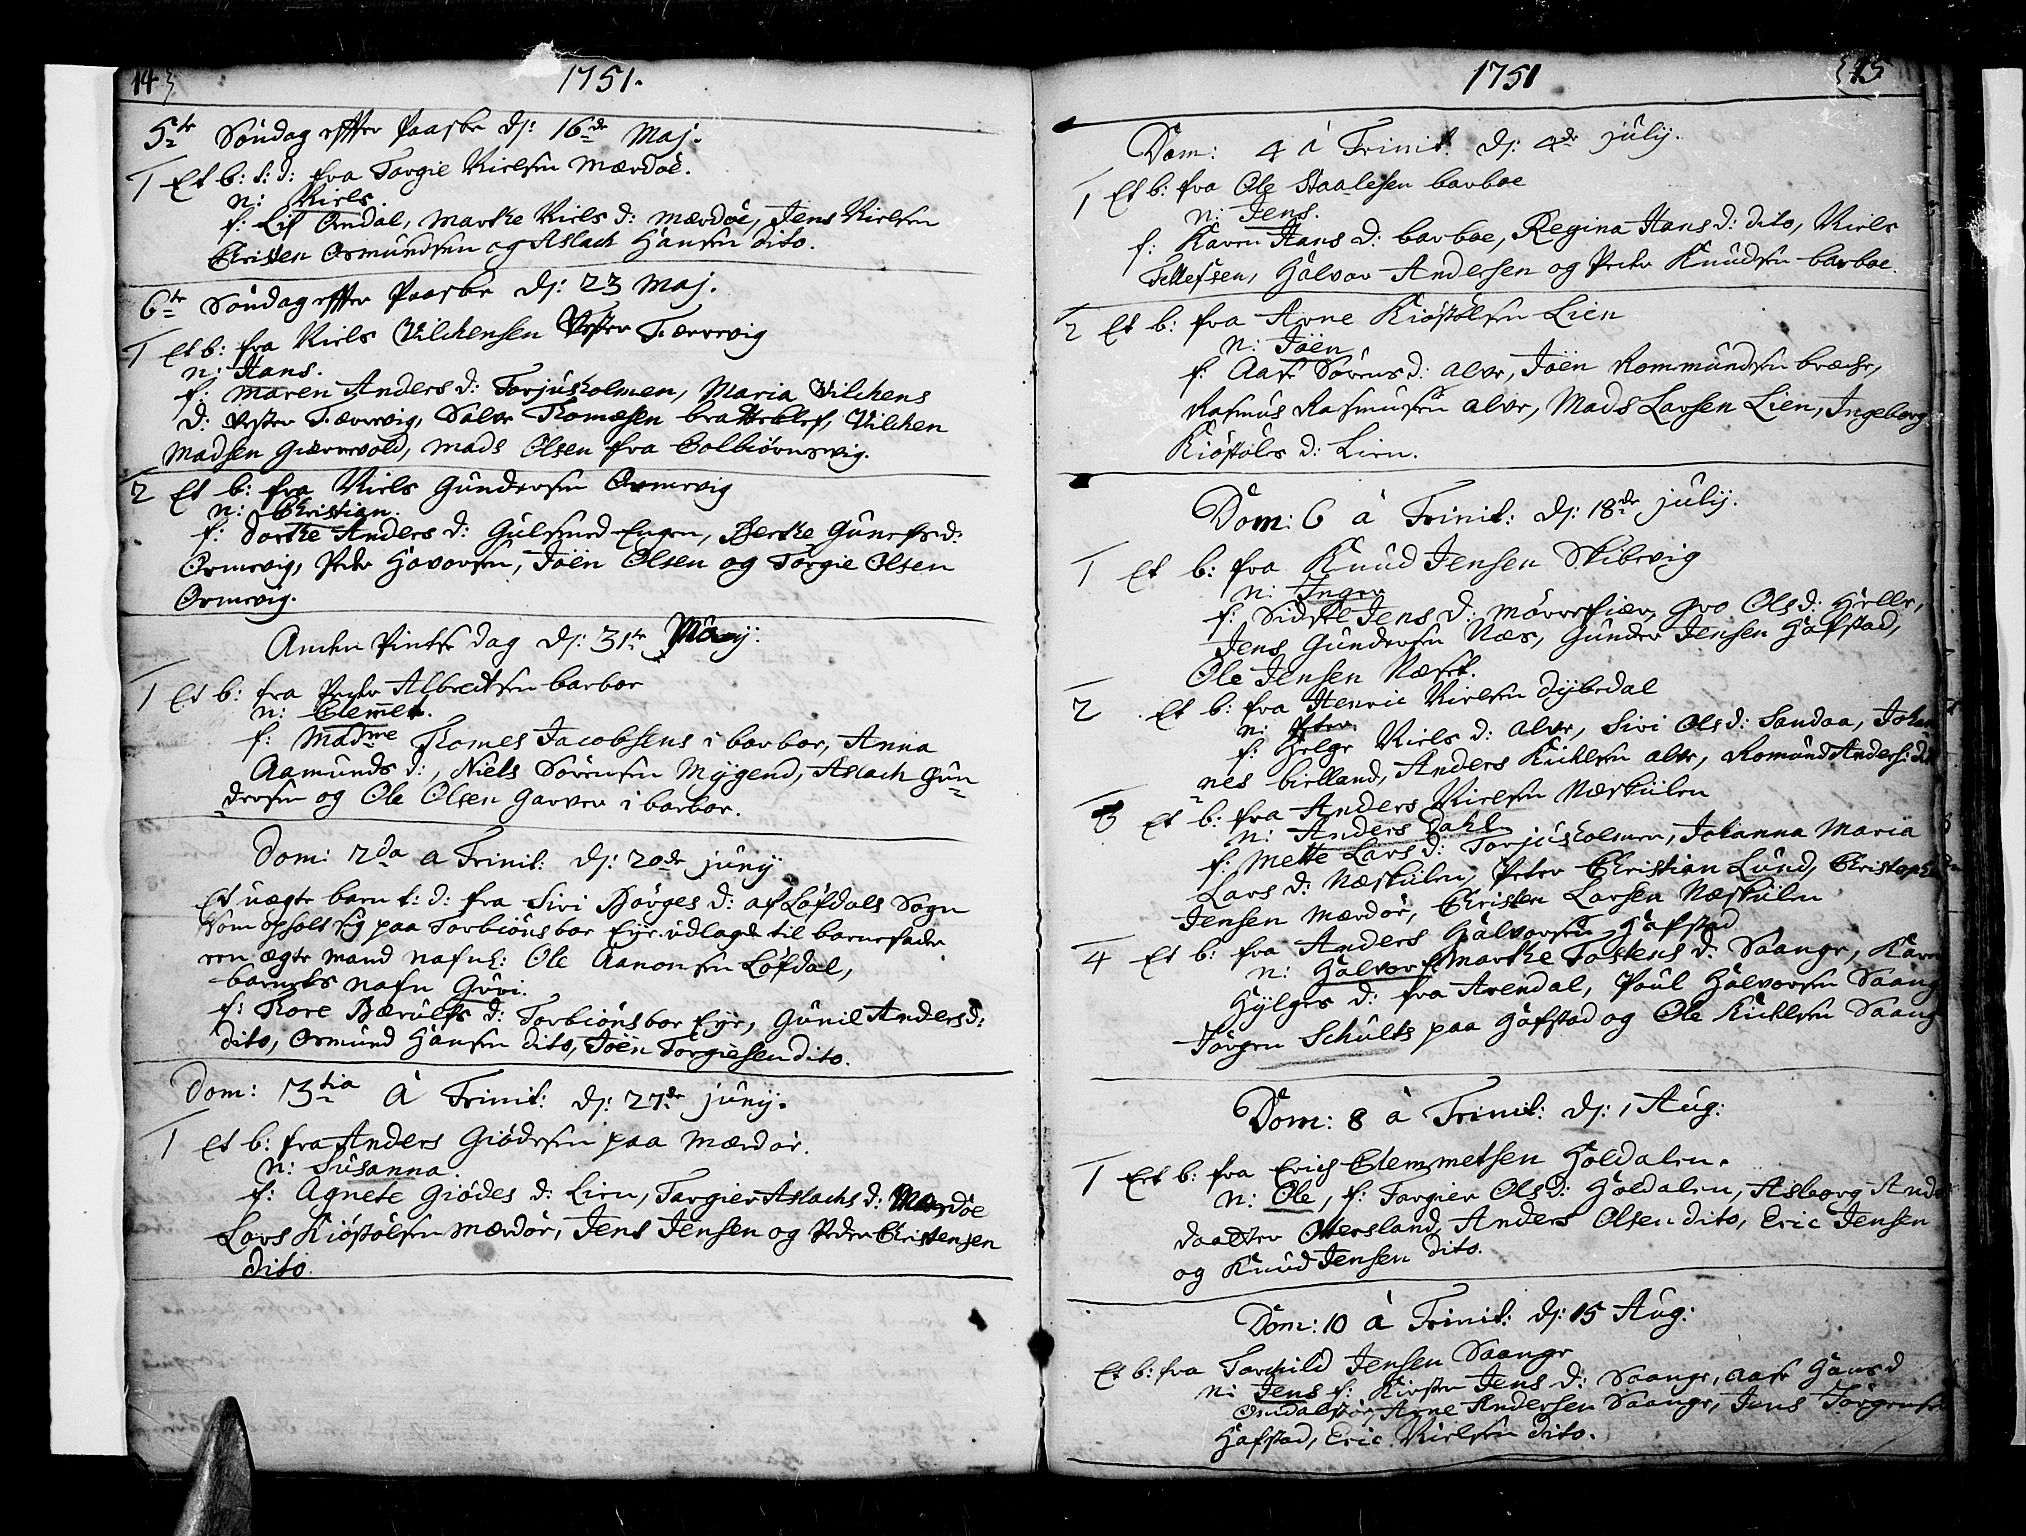 14
1751.
5te Søndag effter Paaske d: 16de Maj.
1 Et b: t: d: fra Targie Nielsen Mærdöe.
n: Niels.
f: Lis Omdal, Marthe Niels d: Mærdöe, Jens Nielsen
Christen Osmundsen og Aslach Hansen dito.
6te Søndag effter Paaske d: 23 Maj.
1 Et b: fra Niels Vilchensen Vester Tærrevig
n: Hans.
f: Maren Anders d: Torjusholmen, Maria Vilchens
d: Vester Tærrevig, Salve Thomæsen bratteklef, Vilchen
Madsen Giærrevold, Mads Olsen fra Colbiörnsvig.
2 Et b: fra Niels Gundersen Ormevig
n: Christian.
f: Dorthe Anders d: Gulsmed Engen, Berthe Gunefs d:
Ormevig, Peder Havorsen, Joen Olsen og Torgie Olsen
Ormevig.
Anden Pintse dag d: 31te May:
1 Et b: fra Peder Albredtsen barboe
n: Clemmet.
f: Madme Thomes Jacobsens i barboe, Anna
Aamunds d:, Niels Sörensen Mÿgend, Aslach Gun-
dersen og Ole Olsen Garver i barboe.
Dom: 2da a Trinit: d: 20de junij
Et uægte barn t: d: fra Sivi Börges d: af Löfdals Sogn
som opholt sig paa Torbiönsboe Eye. udlagde til barnefader
en ægte mand nafnl: Ole Aanonsen Löfdal,
barnets nafn Guri.
f: Thore Bærulfs d: Torbiönsboe Eye, Gunil Anders d:
dito, Osmund Hansen dito, Joen Torgiesen dito.
Dom: 3tia à Trinit: d: 27de junij.
1 et b: fra Anders Giödesen paa Mærdöe.
n: Susanna.
f: Agnete Giödes d: Lien, Targier Aslachs d: Mærdöe
Lars Kiöstolsen Mærdöe, Jens Jensen og Peder Christensen
dito.
1751
15
Dom: 4 à Trinit. d: 4de julij.
1 Et b: fra Ole Staalesen barboe
n: Jens.
f: Karen Hans d: barboe, Regina Hans d: dito, Niels
Tellefsen, Halvor Andersen og Peder Knudsen barboe.
2 Et b: fra Arne Kiöstolsen Lien
n: Joen
f: Aase Sörens d: alve, Joen Rommundsen brække,
Rasmus Rasmusen alve, Mads Larsen Lien, Ingeborg
Kiöstols d: Lien.
Dom: 6 à Trinit: d: 18de julij.
1 Et b: fra Knud Jensen Skibevig
n: Inger
f: Sidsel Jens d: Mörrefiær, Gro Ols d: Helle,
Jens Gundersen Næs, Gunder Jensen Hafstad,
Ole Jensen Næset.
2 Et b: fra Henric Nielsen Dybedal
n: Peter
f: Helge Niels d: alve, Sivi Ols d: Sandaa, Johan-
nes bielland, Anders Kichlsen alve, Romund Anders: dit
3 et b: fra Anders Nielsen Næskilen
n: Anders Dahl
f: Mette Lars d: Torjusholmen, Johanna Maria
Lars d: Næskilen, Peter Christian Lund, Christopher
Jensen Mærdöe, Christen Larsen Næskilen
4 Et b: fra Anders Halvorsen Hafstad
n: Halvor f: Marthe Tostens d: Saange, Karen
Hylges d: fra Arendal, Poul Halvorsen Saange
Jörgen Schults paa Hafstad og Ole Kichlsen Saange
Dom: 8 à Trinit: d: 1 Aug:
1 Ett b: fra Erich Clemmetsen Holdalen.
n: Ole, f: Targier Ols d: Holdalen, Asborg Anders
daatter Ottersland, Anders Olsen dito, Eric Jensen
og Knud Jensen dito.
Dom: 10 à Trinit: d: 15 Aug:
Et b: fra Torchild Jensen Saange
n: Jens f: Kirsten Jens d: Saange, Aase Hans d
Omdalstöe, Arne Andersen Saange, Jens Jörgensen
Hafstad, Eric Nielsen dito.